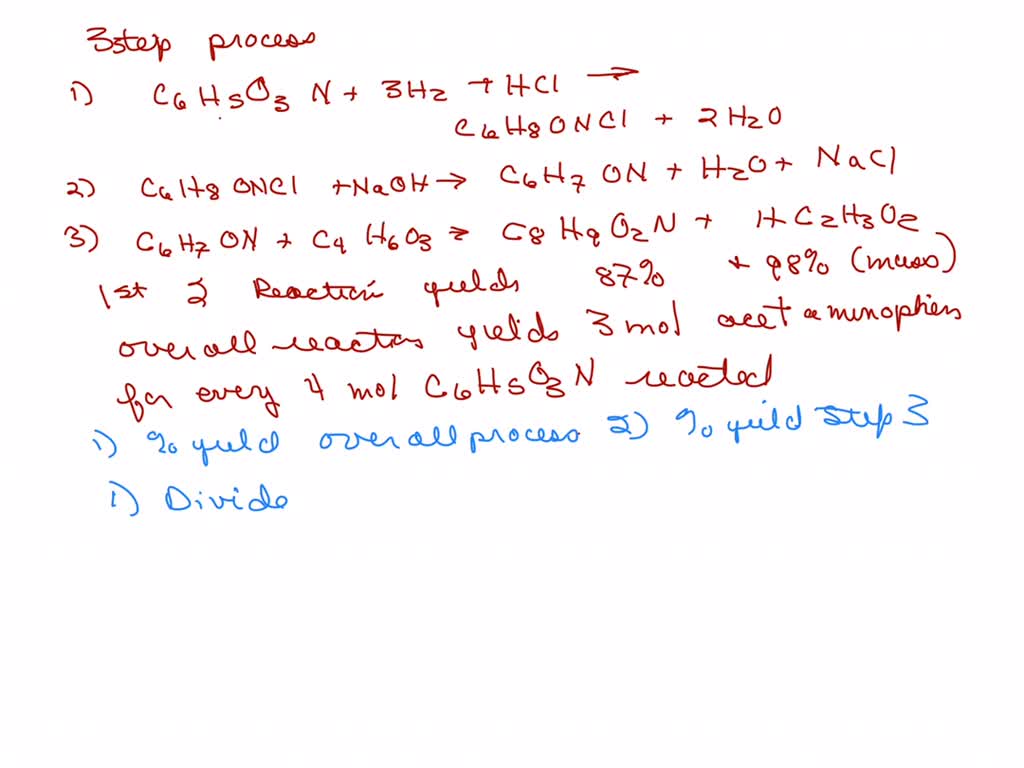 3 step process
1) C6H5O3N + 3H2 + HCl →
C6H8ONCl + 2H2O
2) C6H8ONCl + NaOH → C6H7ON + H2O + NaCl
3) C6H7ON + C4H6O3 = C8H9O2N + HC2H3O2
1st 2 Reaction yields 87% + 98% (mass)
overall reaction yields 3 mol acetaminophen
for every 4 mol C6H5O3N reacted
1) % yield overall process 2) % yield step 3
1) Divide